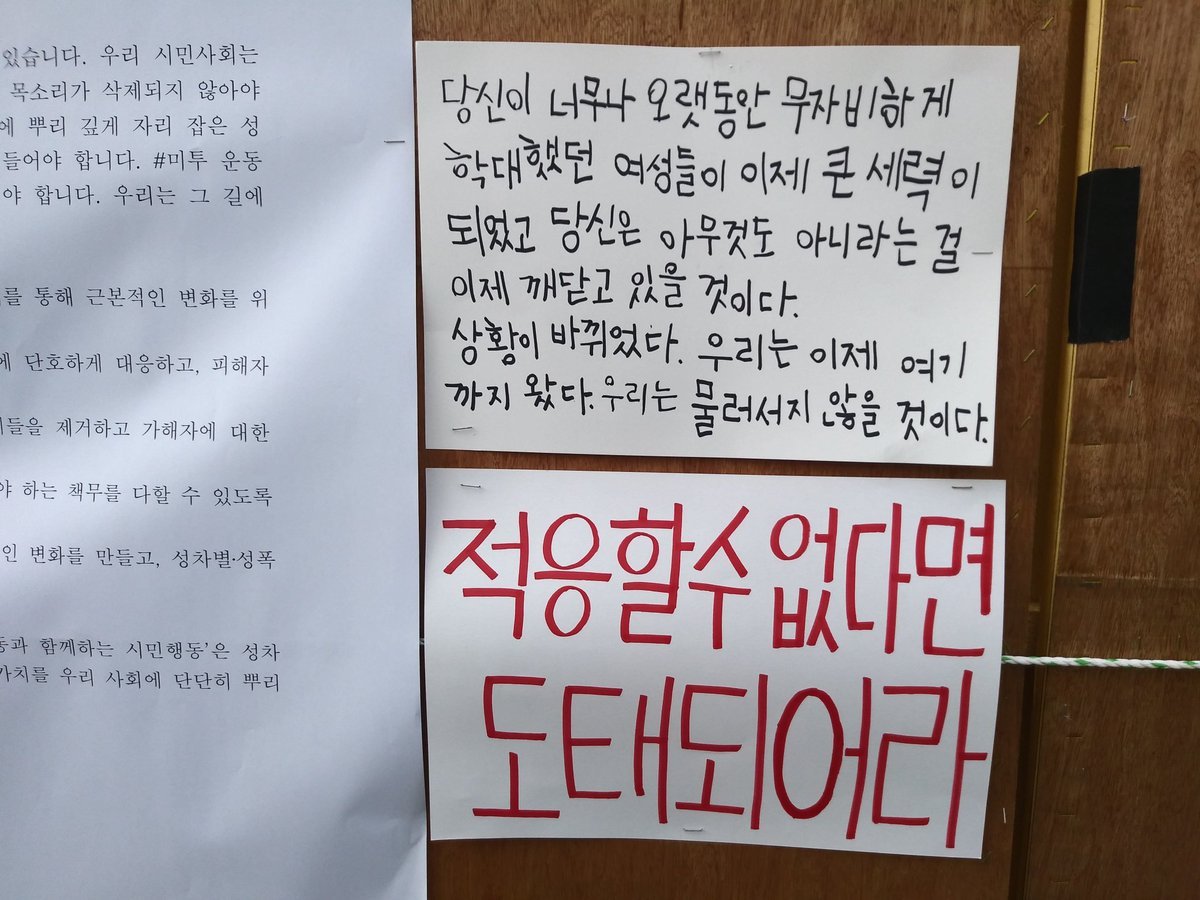 있습니다. 우리 시민사회는
목소리가 삭제되지 않아야
에 뿌리 깊게 자리 잡은 성
들어야 합니다. #미투 운동
야 합니다. 우리는 그 길에
를 통해 근본적인 변화를 위
에 단호하게 대응하고, 피해자
들을 제거하고 가해자에 대한
야 하는 책무를 다할 수 있도록
인 변화를 만들고, 성차별·성폭
동과 함께하는 시민행동’은 성차
가치를 우리 사회에 단단히 뿌리
당신이 너무나 오랫동안 무자비하게
학대했던 여성들이 이제 큰 세력이
되었고 당신은 아무것도 아니라는 걸
이제 깨닫고 있을 것이다.
상황이 바뀌었다. 우리는 이제 여기
까지 왔다. 우리는 물러서지 않을 것이다.
적응할수 없다면
도태되어라